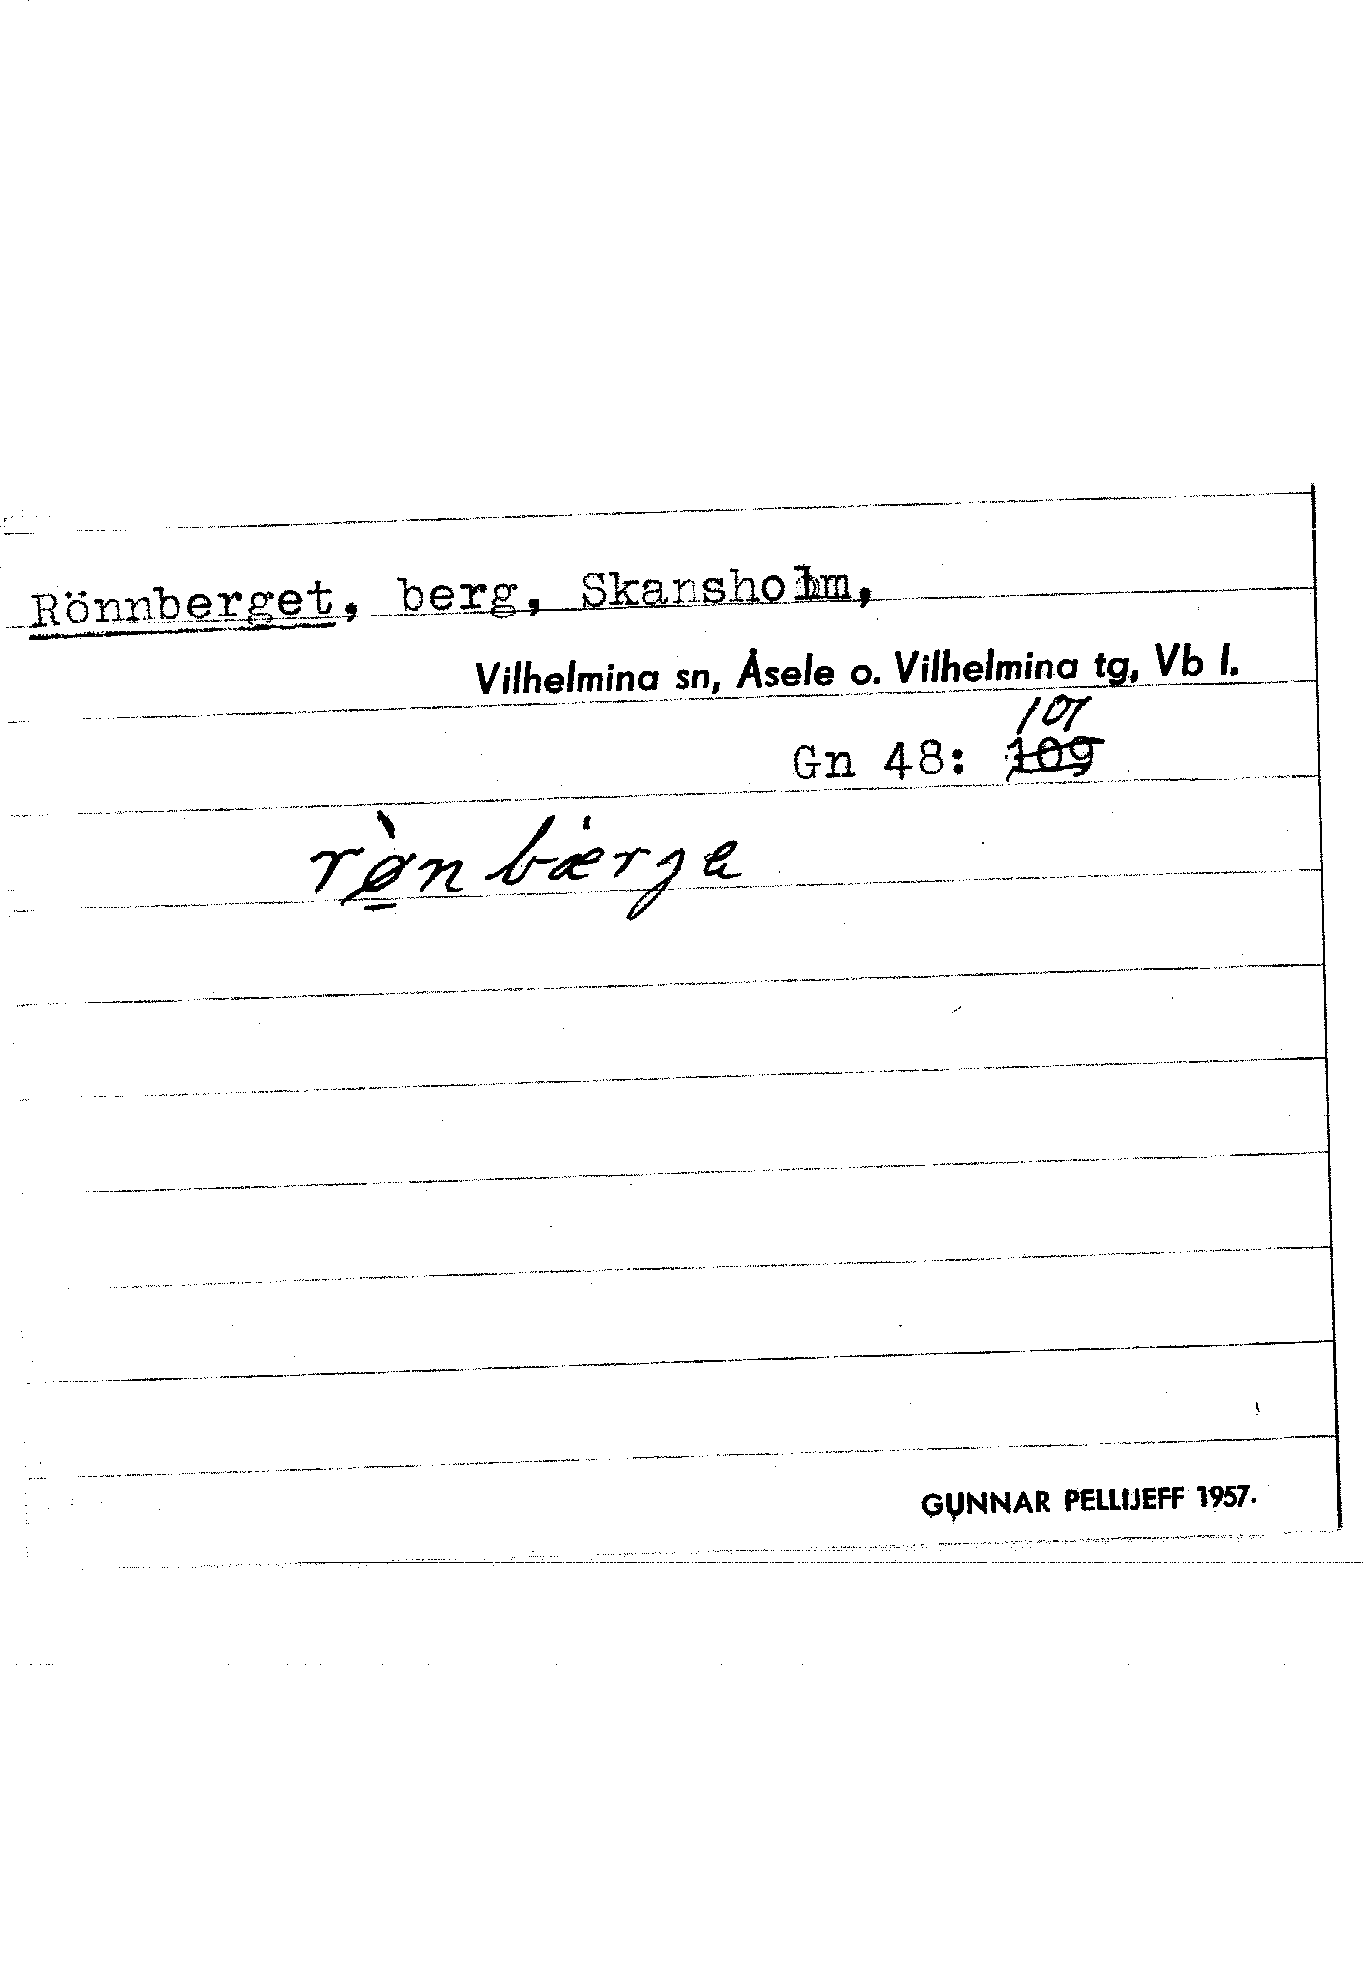 Rönnberget, berg, Skansholm,
Vilhelmina sn, Åsele o. Vilhelmina tg, Vb l.
101
Gn 48: 109
rø̀nbærje
GUNNAR PELLIJEFF 1957.